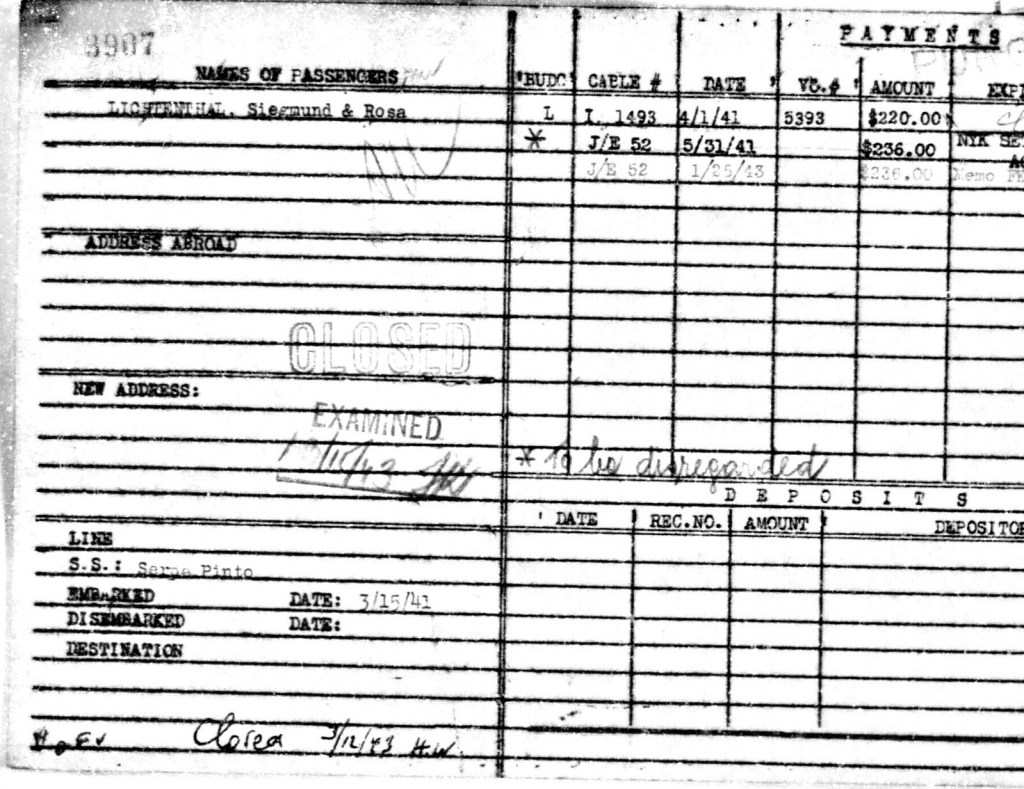 3907
PAYMENTS
NAMES OF PASSENGERS BUDG CABLE # DATE VC.# AMOUNT
LICHTENTHAL, Siegmund & Rosa L I. 1493 4/1/41 5393 $220.00
* J/E 52 5/31/41 $236.00 NYK SE
J/E 52 1/25/43 $236.00 Memo
ADDRESS ABROAD
CLOSED
NEW ADDRESS:
EXAMINED
* To be disregarded
DEPOSITS
DATE REC.NO. AMOUNT DEPOSITO
LINE
S.S.: Serpa Pinto
EMBARKED DATE: 3/15/41
DISEMBARKED DATE:
DESTINATION
Closed 3/12/43 H.W.